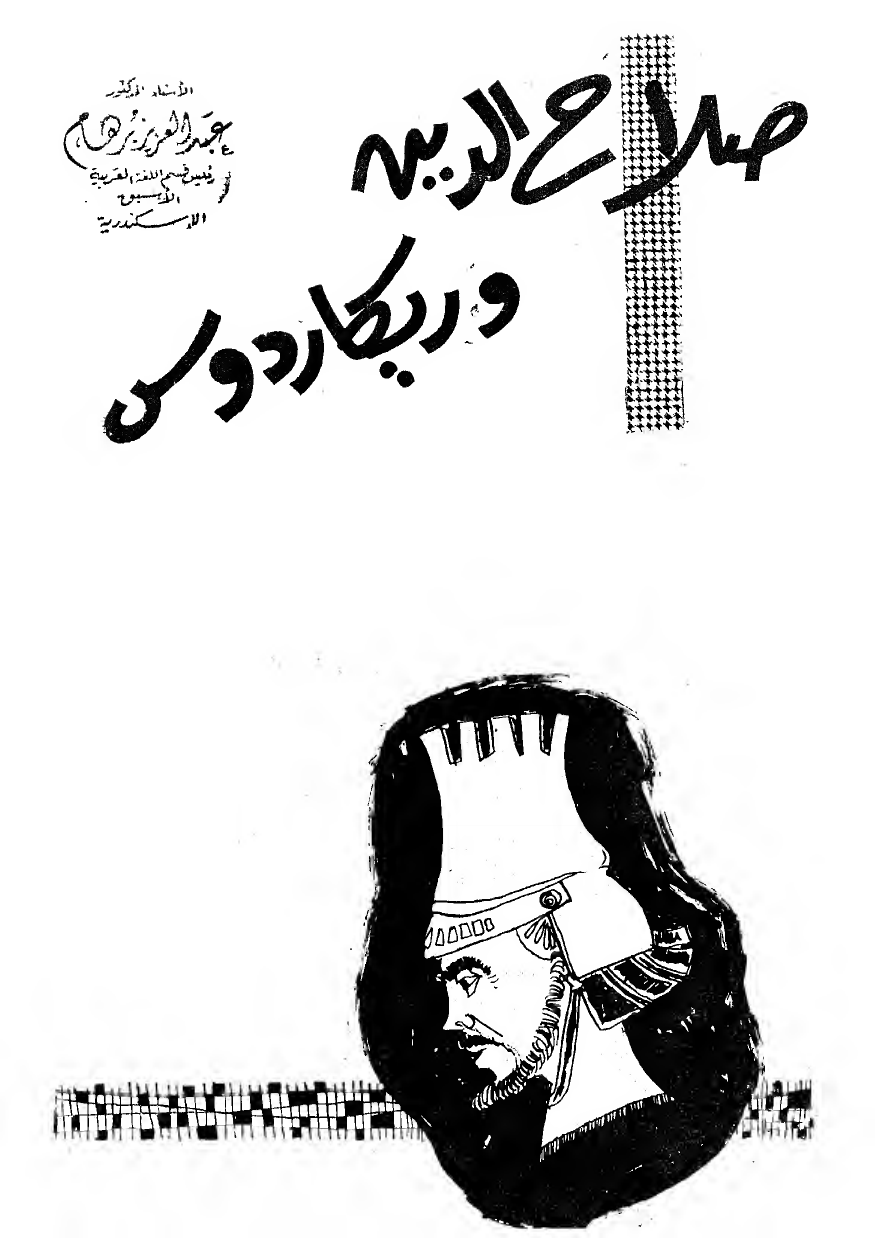 صلاح الدين
وريكاردوس
الأستاذ الدكتور
عبد العزيز برهام
رئيس قسم اللغة العربية
الأسبق
الإسكندرية